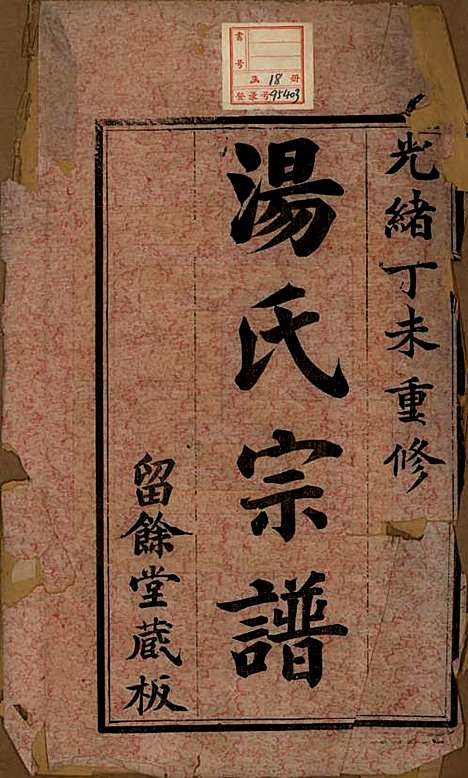 光緒丁未重修
湯氏宗譜
留餘堂藏板
書號
五 18 冊
登录号 95403